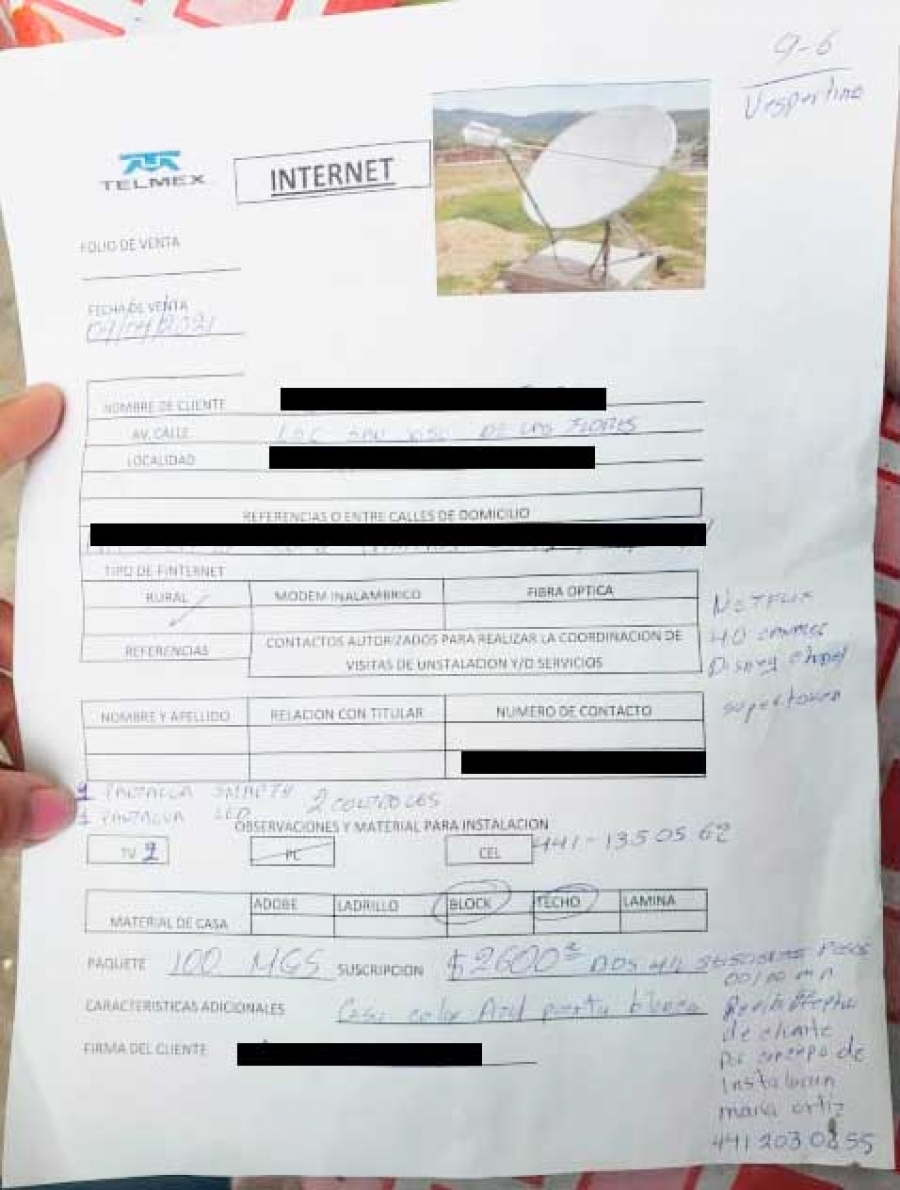 9-6
Vespertino
TELMEX
INTERNET
FOLIO DE VENTA
FECHA DE VENTA
09/04/2021
NOMBRE DE CLIENTE
AV. CALLE LOC SAN JOSE DE LAS FLORES
LOCALIDAD
REFERENCIAS O ENTRE CALLES DE DOMICILIO
TIPO DE FINTERNET
RURAL MODEM INALAMBRICO FIBRA OPTICA
REFERENCIAS CONTACTOS AUTORIZADOS PARA REALIZAR LA COORDINACION DE
VISITAS DE UNSTALACION Y/O SERVICIOS
NETFLIX
40 canales
Disney
NOMBRE Y APELLIDO RELACION CON TITULAR NUMERO DE CONTACTO
1 PANTALLA SMARTV 2 CONTROLES
1 PANTALLA LED
OBSERVACIONES Y MATERIAL PARA INSTALACION
TV 2 PC CEL 441-135 05 62
MATERIAL DE CASA ADOBE LADRILLO BLOCK TECHO LAMINA
PAQUETE 100 MGS SUSCRIPCION $2600 DOS PESOS
00/100 m n
CARACTERISTICAS ADICIONALES Casa color Azul puerta blanca
FIRMA DEL CLIENTE
de cliente
de
maria ortiz
441 203 08 55